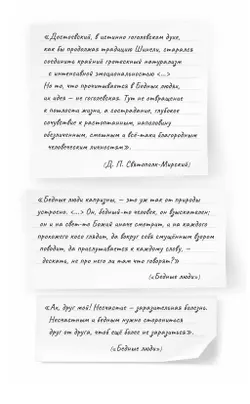 «Достоевский, в истинно гоголевском духе,
как бы продолжая традицию Шинели, старался
соединить крайний гротескный натурализм
с интенсивной эмоциональностью <...>
Но то, что прочитывается в Бедных людях,
их идея – не гоголевская. Тут не отвращение
к пошлости жизни, а сострадание, глубокое
сочувствие к растоптанным, наполовину
обезличенным, смешным и всё-таки благородным
человеческим личностям».
(Д. П. Святополк-Мирский)
«Бедные люди капризны, – это уж так от природы
устроено. <...> Он, бедный-то человек, он взыскателен;
он и на свет-то Божий иначе смотрит, и на каждого
прохожего косо глядит, да вокруг себя смущённым взором
поводит, да прислушивается к каждому слову, –
дескать, не про него ли там что говорят?»
(«Бедные люди»)
«Ах, друг мой! Несчастие – заразительная болезнь.
Несчастным и бедным нужно сторониться
друг от друга, чтоб ещё более не заразиться».
(«Бедные люди»)